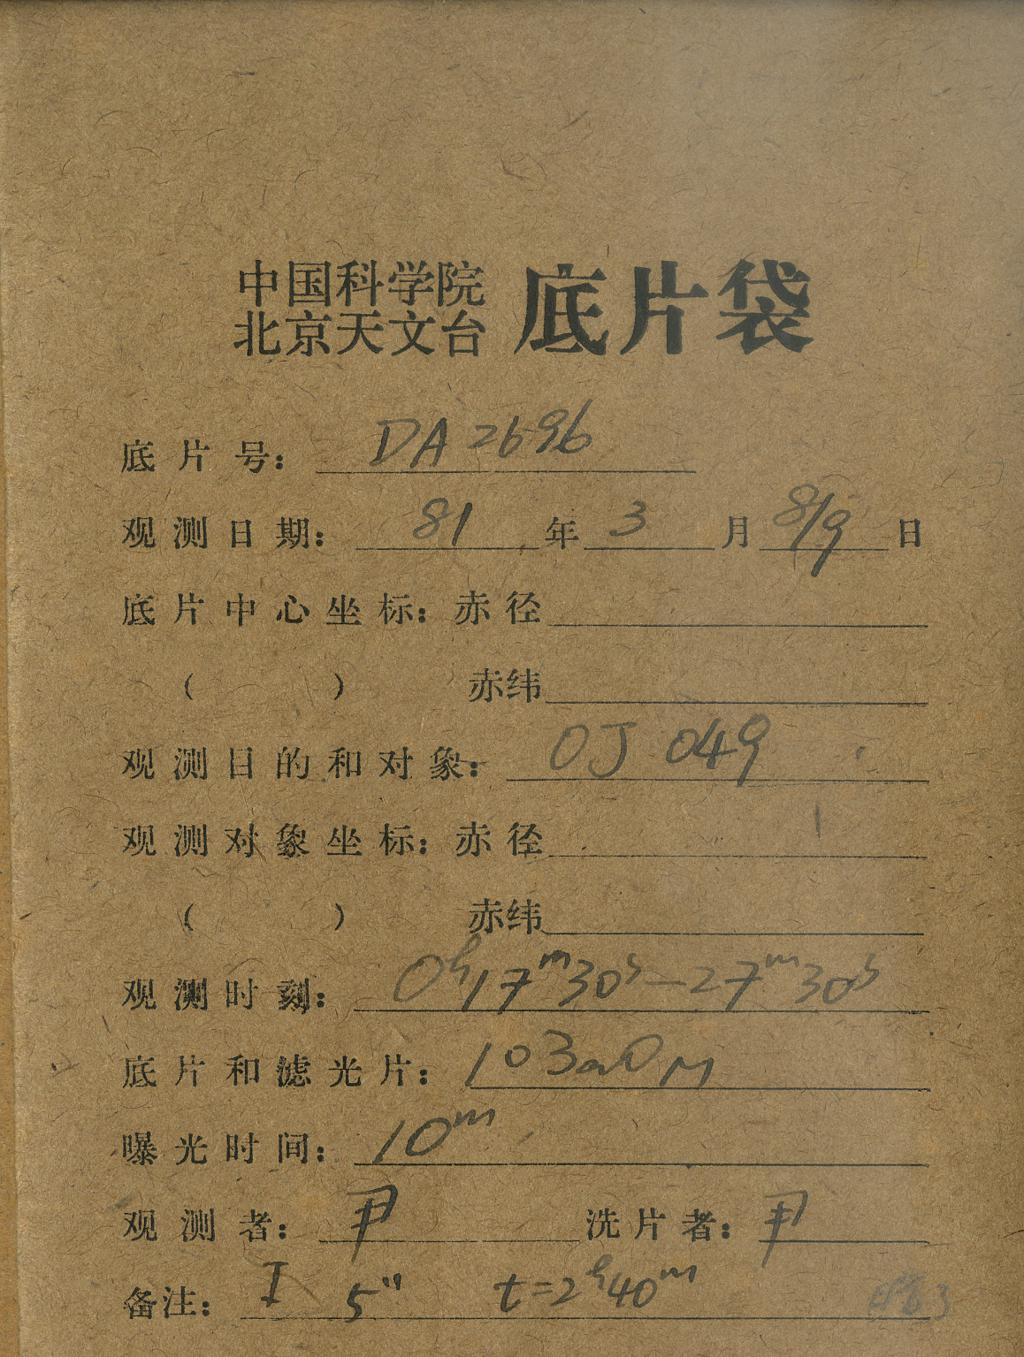 中国科学院
北京天文台 底片袋
底片号: DA 2696
观测日期: 81 年 3 月 8/9 日
底片中心坐标: 赤径
( ) 赤纬
观测目的和对象: OJ 049
观测对象坐标: 赤径
( ) 赤纬
观测时刻: 0h17m30s-27m30s
底片和滤光片: 103aO
曝光时间: 10m
观测者: 尹 洗片者: 尹
备注: I 5" t=2h40m